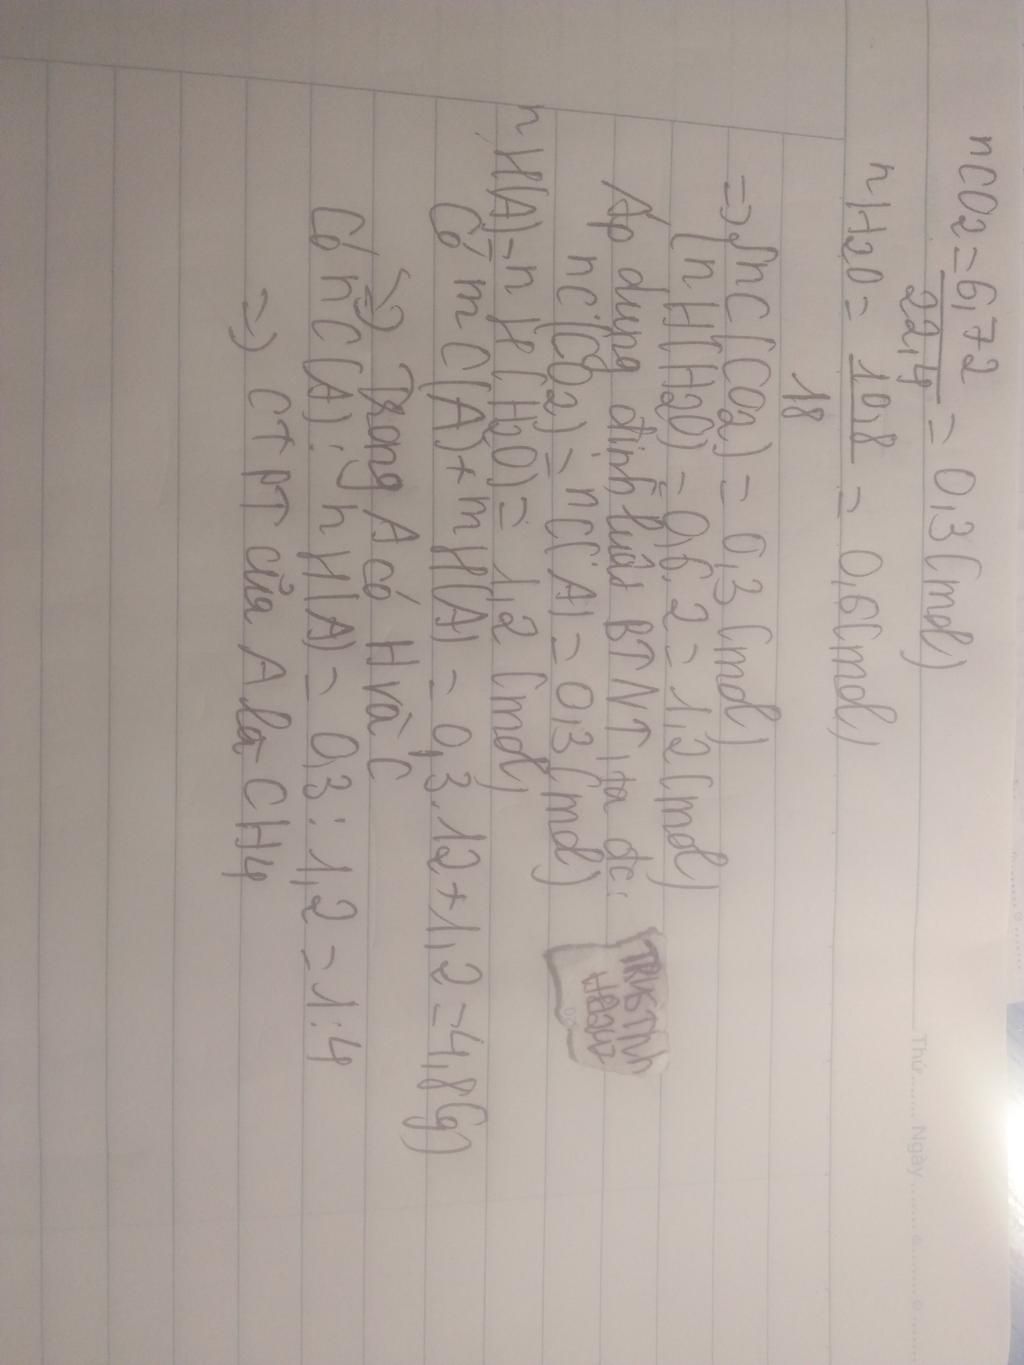 nCO2 = 6,72 / 22,4 = 0,3 (mol)
nH2O = 10,8 / 18 = 0,6 (mol)
=> { nC (CO2) = 0,3 (mol)
{ nH (H2O) = 0,6.2 = 1,2 (mol)
Áp dụng định luật BTNT, ta đc:
nC (CO2) = nC (A) = 0,3 (mol)
nH(A) = nH (H2O) = 1,2 (mol)
Có mC(A) + mH(A) = 0,3.12 + 1,2 = 4,8 (g)
=> Trong A có H và C
Có nC(A) : nH(A) = 0,3 : 1,2 = 1:4
=> CTPT của A là CH4
Thứ........ Ngày........